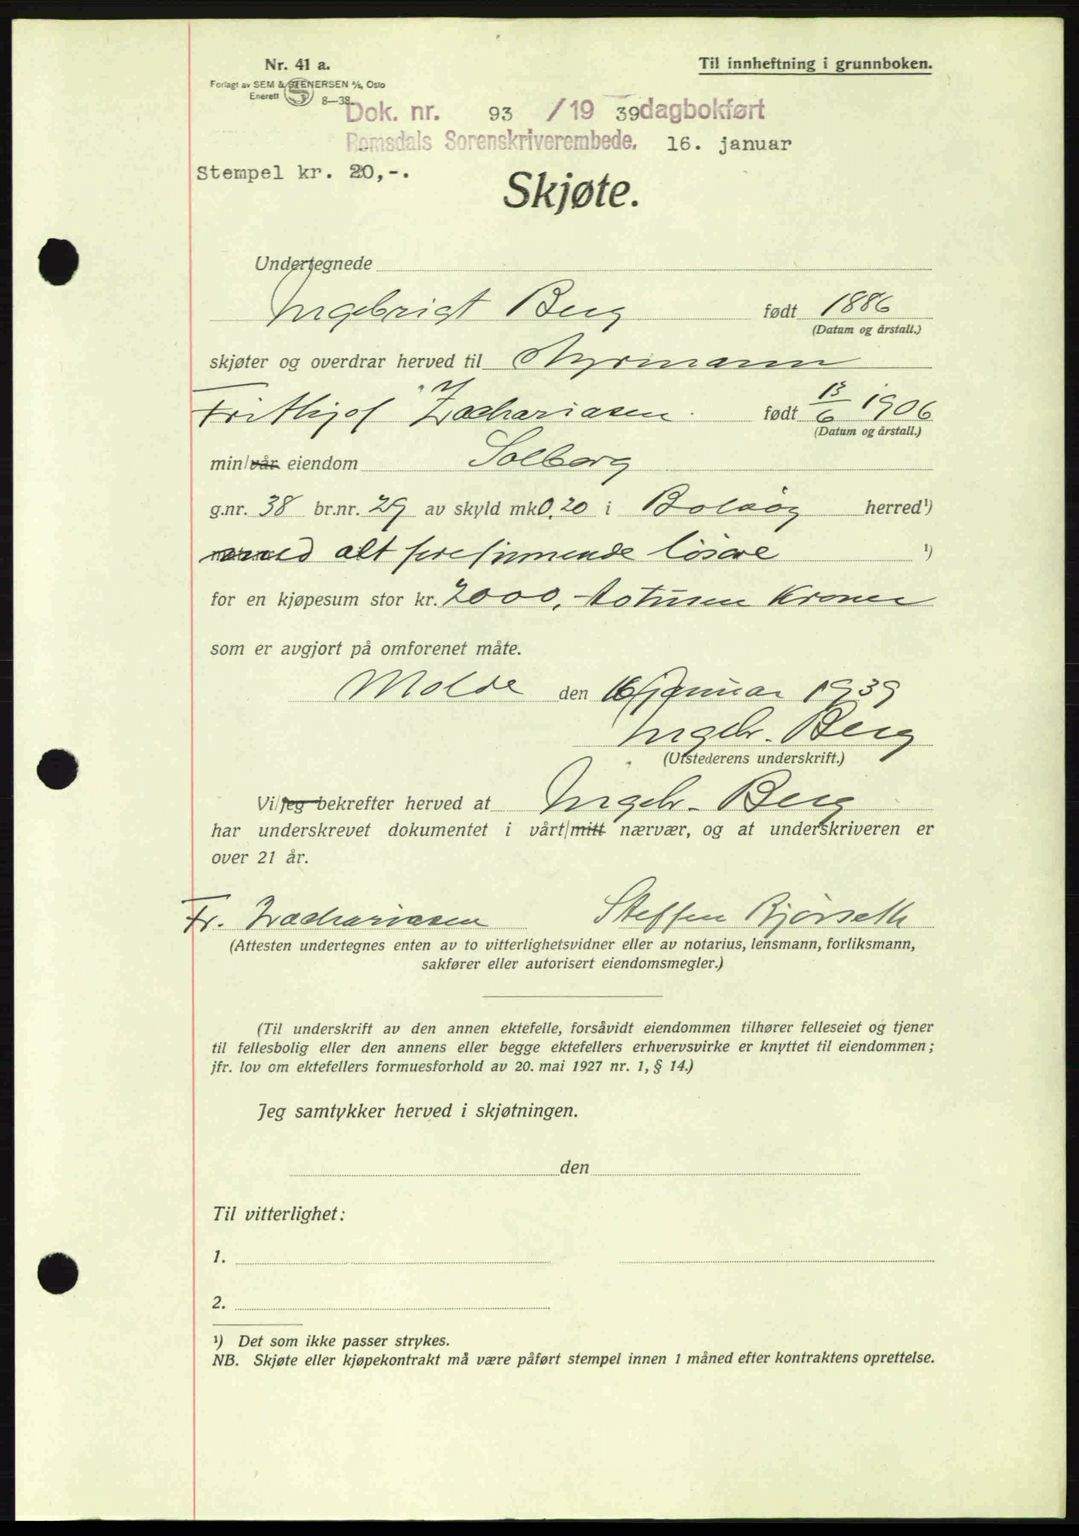 Nr. 41 a.
Til innheftning i grunnboken.
Forlagt av SEM & STENERSEN A/S, Oslo
Enerett 8—38.
Dok. nr. 93 /19 39 dagbokført
Romsdals Sorenskriverembede. 16. januar
Stempel kr. 20,-.
Skjøte.
Undertegnede
Ingebrigt Berg født 1886
(Datum og årstall.)
skjøter og overdrar herved til Styrmann
Frithjof Zachariasen. født 13/6 1906
(Datum og årstall.)
min/vår eiendom Solborg
g.nr. 38 br.nr. 29 av skyld mk 0,20 i Bolsøy herred¹)
med alt forefinnende løsøre ¹)
for en kjøpesum stor kr. 2000,- totusen Kroner
som er avgjort på omforenet måte.
Molde den 16/januar 1939
Ingebr. Berg
(Utstederens underskrift.)
Vi/jeg bekrefter herved at Ingebr. Berg
har underskrevet dokumentet i vårt/mitt nærvær, og at underskriveren er
over 21 år.
Fr. Zachariasen Steffen Bjørseth
(Attesten undertegnes enten av to vitterlighetsvidner eller av notarius, lensmann, forliksmann,
sakfører eller autorisert eiendomsmegler.)
(Til underskrift av den annen ektefelle, forsåvidt eiendommen tilhører felleseiet og tjener
til fellesbolig eller den annens eller begge ektefellers erhvervsvirke er knyttet til eiendommen;
jfr. lov om ektefellers formuesforhold av 20. mai 1927 nr. 1, § 14.)
Jeg samtykker herved i skjøtningen.
den
Til vitterlighet:
1.
2.
¹) Det som ikke passer strykes.
NB. Skjøte eller kjøpekontrakt må være påført stempel innen 1 måned efter kontraktens oprettelse.